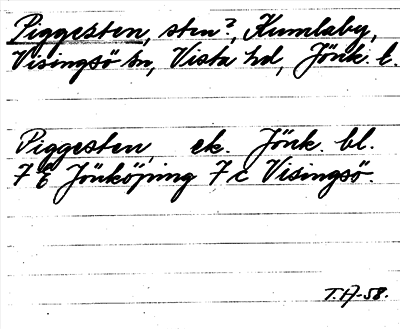 Piggesten, sten?, Kumlaby,
Visingsö sn, Vista hd, Jönk. l.
Piggesten, ek. Jönk. bl.
7 E Jönköping 7 c Visingsö.
T.A-58.